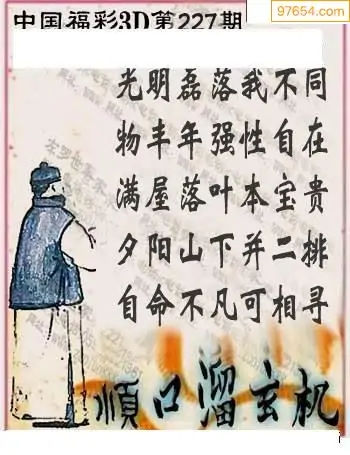 97654.com
中国福彩3D第227期
光明磊落我不同
物丰年强性自在
满屋落叶本宝贵
夕阳山下并二排
自命不凡可相寻
顺口溜玄机